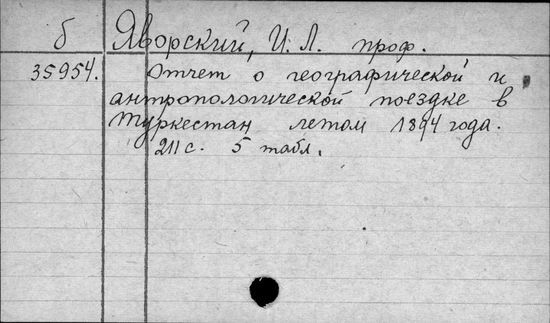 б Яворский, И. Л. проф.
35954. Отчет о географической и
антропологической поездке в
Туркестан летом 1894 года.
211 с. 5 табл.